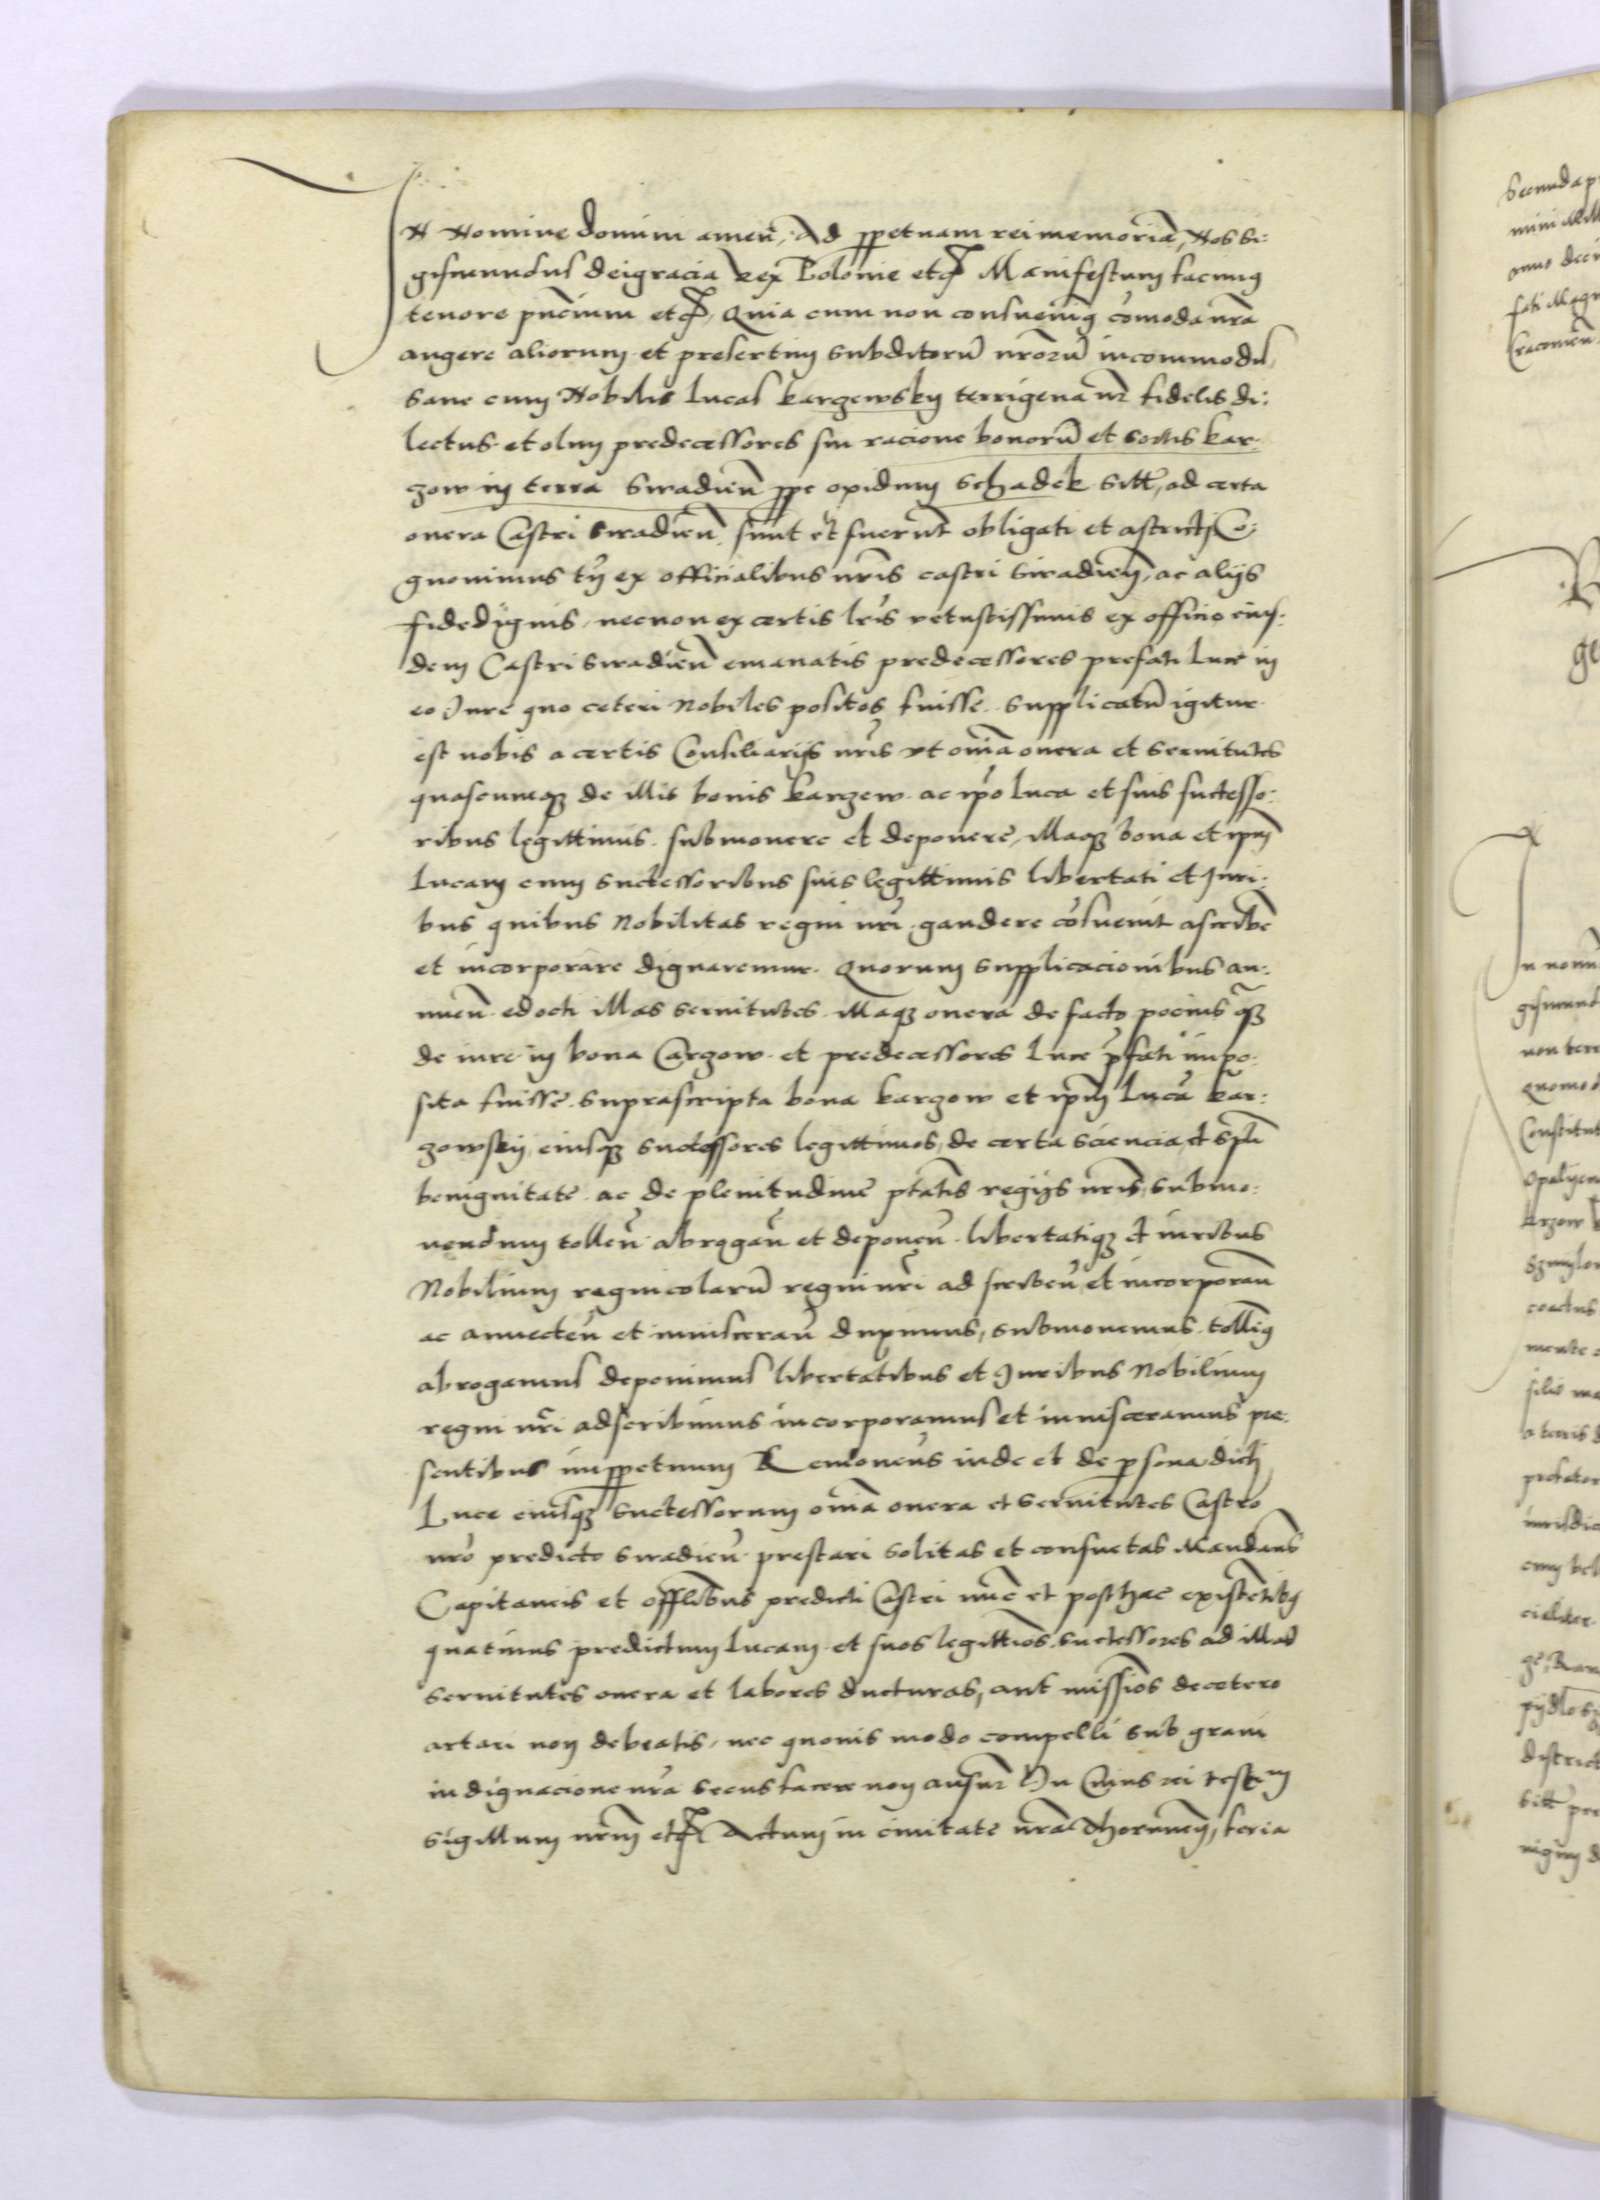 In Nomine domini amen, Ad ppetuam rei memoria, Nos Si:
gismundus dei gracia Rex Polonie etc Manifestum facimus
tenore pncium etc, Quia cum non consuevimus comoda nra
augere aliorum et presertim subditoru nroru incommodis,
Sane cum Nobilis Lucas kargewsky terrigena nr fidelis di:
lectus et olim predecessores sui racione bonoru et sortis kar:
zow in terra Siradien ppe opidum Schadek sitt, ad certa
onera Castri Siradien sunt et fuerunt obligati et astricti Co:
gnovimus tn ex officialibus nris castri Siradien, ac aliis
fidedignis, necnon ex certis lris vetustissimis ex officio eius:
dem Castri Siradien emanatis predecessores prefati Luce in
eo Jure quo ceteri Nobiles positos fuisse. Supplicatu igitur
est nobis a certis Consiliariis nris vt omia onera et servitutes
quascumque de illis bonis kargew ac ipo Luca et suis successo:
ribus legittimis submovere et deponere, illaque bona et ipm
Lucam cum successoribus suis legittimis libertati et Juri:
bus quibus Nobilitas regni nri gaudere cosuevit ascribe
et incorporare dignaremur. Quorum supplicacionibus an:
nuen edocti illas servitutes illaque onera de facto pocius qz
de iure in bona Cargow et predecessores Luce pfati impo:
sita fuisse. Suprascripta bona kargow et ipm Luca kar:
zowsky, eiusque successores legittimos, de certa sciencia, et spali
benignitate ac de plenitudine ptatis regiis nris, submo:
vendum tollen abrogan et deponen libertatique et iuribus
Nobilium regnicolaru regni nri ad scriben et incorporan
ac annecten et inisceran duximus, submovemus tollimus
abrogamus deponimus libertatibus et Juribus Nobilium
regni nri adscribimus incorporamus et inisceramus pre:
sentibus inppetuum Removens inde et de psona dicti
Luce eiusque successorum omia onera et servitutes Castro
nro predicto Siradien prestari solitas et consuetas Mandans
Capitaneis et offlibus predicti Castri nuc et posthac existetibus
quatinus predictum Lucam et suos legittios successores ad illas
servitutes onera et labores ducturas, aut missios decetero
artari non debeatis, nec quovis modo compelli sub gravi
indignacione nra secus facere non ausur In Cuius rei testm
Sigillum nrm etc Actum in civitate nra Thorunen, feria